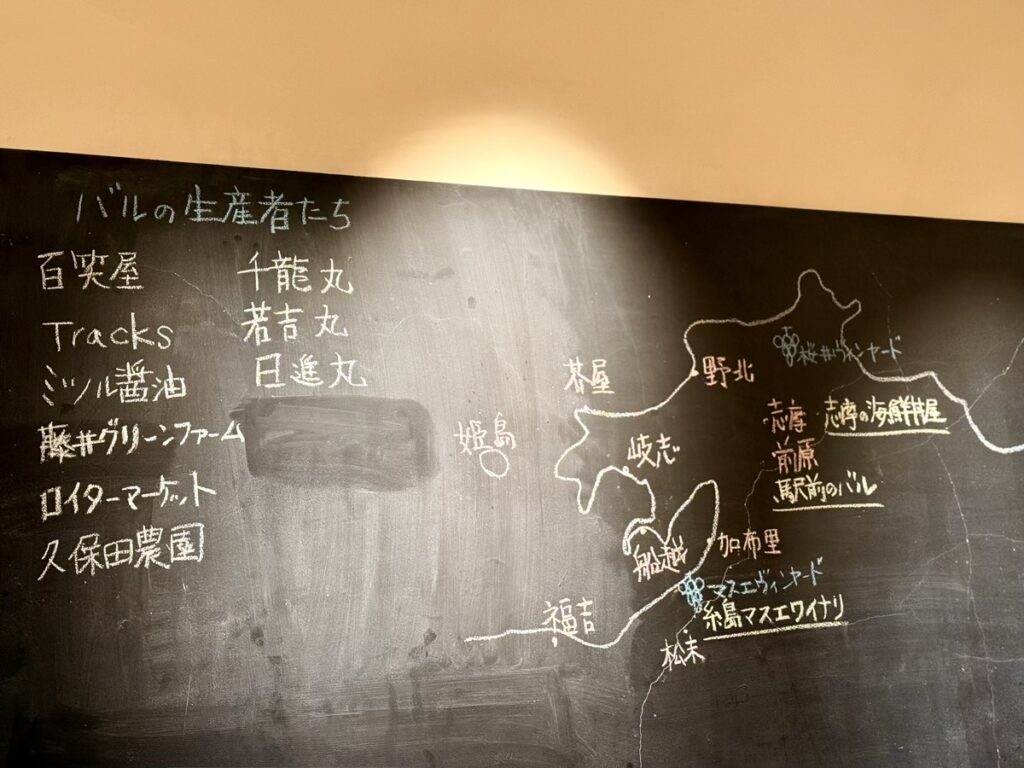 バルの生産者たち
百笑屋
Tracks
ミツル醤油
藤井グリーンファーム
ロイターマーケット
久保田農園
千龍丸
若吉丸
日進丸
桜井ヴィンヤード
野北
芥屋
姫島
岐志
志摩
志摩の海鮮丼屋
前原
駅前のバル
船越
加布里
マスエヴィンヤード
糸島マスエワイナリ
福吉
松末